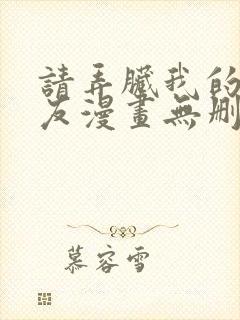 請弄臟我的
友漫畫無刪
慕容雪